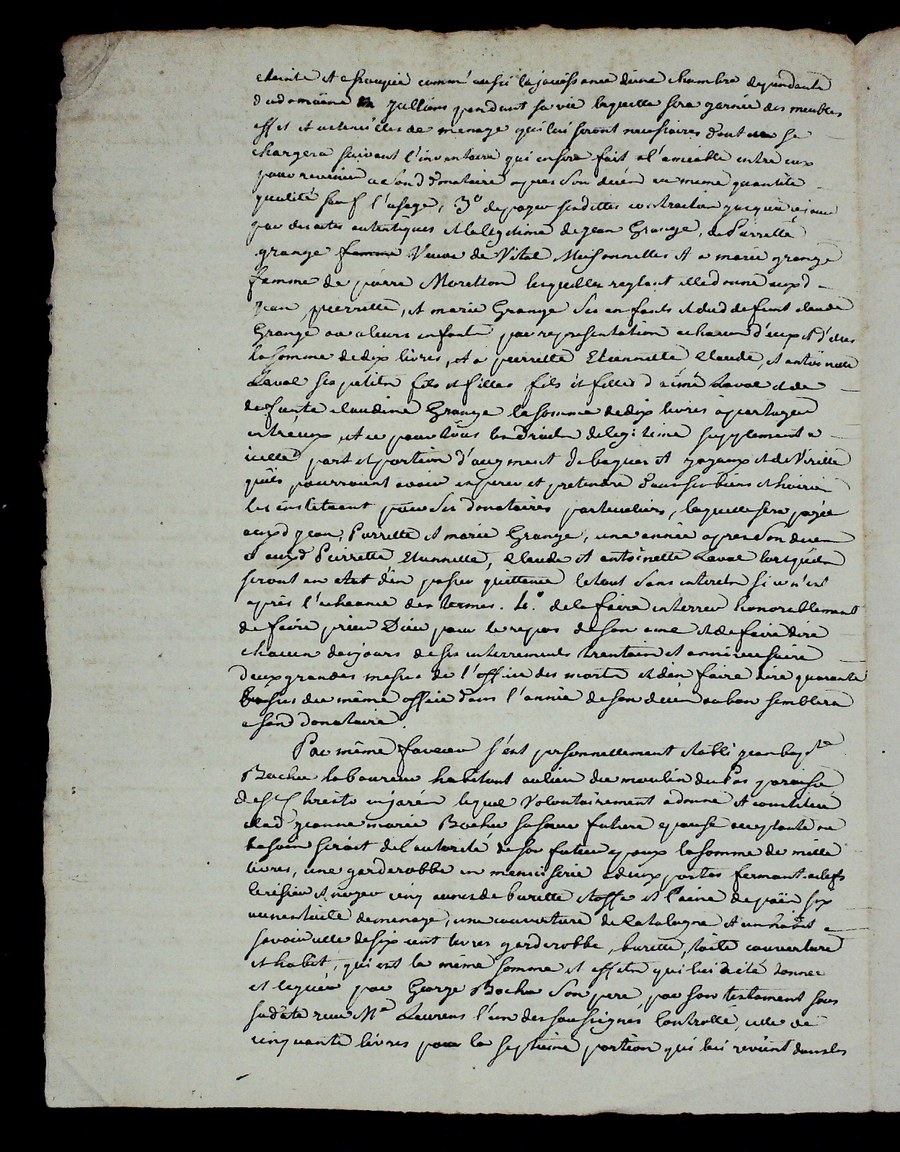 eteinte et assoupie comm'aussi la jouissance d'une chambre dependante
dud domaine en julliens pendant sa vie laquelle sera garnie des meubles
effet et ustencilles de menage qui lui seront necessaires dont elle se
chargera suivant l'inventaire qui en sera fait a l'amiable entre eux
pour revenir a sond donataire apres son décéd en meme quantité
qualité sauf l'usage, 3° de payer sesdittes contraction jusques a ce jour
par des actes autentiques et la legitime de jean Grange, de Pierrette
grange femme Veuve de Vital Meisonnettes et a marie grange
femme de pierre Moretton lesquelles reglant elle donne auxd
jean, pierrette, et marie Grange ses enfants et dud defunt claude
Grange ou a leurs enfants par representation a chacun d'eux et d'elles
la somme de dix livres, et a pierrette Etiennette Claude, et antoinette
Laval ses petits fils et filles fils et filles d'aimé Laval et de
defunte claudine Grange la somme de dix livres a partager
entr'eux, et ce pour tous leurs droits de legitime supplement a
icelle part et portion d'augment de bagues et joyaux et de Virille
qu'ils pourroient avoir esperer et pretendre dans ses biens et hoirie
les instituant pour ses donataires particuliers, laquelle sera payée
auxd jean, Pierrette et marie Grange, une année apres son décéd
et auxd Pierrette Etiennette, Claude et antoinette Laval lorsqu'ils
seront en etat d'en passer quittance le tout sans interets si ce n'est
après l'echeance des termes. 4.° de la faire enterrer honorablement
de faire prier Dieu pour le repos de son ame et de faire dire
chacun des jours de ses enterrements trentain et anniversaire
deux grandes messes de l'office des morts et d'en faire dire quarante
basses du même office dans l'année de son décéd ou bon semblera
a sond donataire.
Par même faveur s'est personnellement etabli jean bap.te
Bachu laboureur habitant au lieu du moulin du Pas paroisse
de S.t Christo en jarén lequel volontairement a donné et constitué
a lad jeanne marie Bachu sa soeur future epouse acceptante ou
besoin seroit de l'autorité de son futur epoux la somme de mille
livres, une garderobbe en menuiserie a deux portes fermant a clefs
cerisier et noyer cinq aunes de burette etoffe et laine de païs six
aunes toille de menage, une couverture de Catalogne et un habit
savoir celle de six cent livres garderobbe, burette, toile couverture
et habit, qui est la même somme et effets qui lui a été donnée
et leguée par George Bachu son pere, par son testament sous
sa datte recu M.e Laurens l'un des soussignés Controllé, celle de
cinquante livres pour la septieme portion qui lui revient dans les